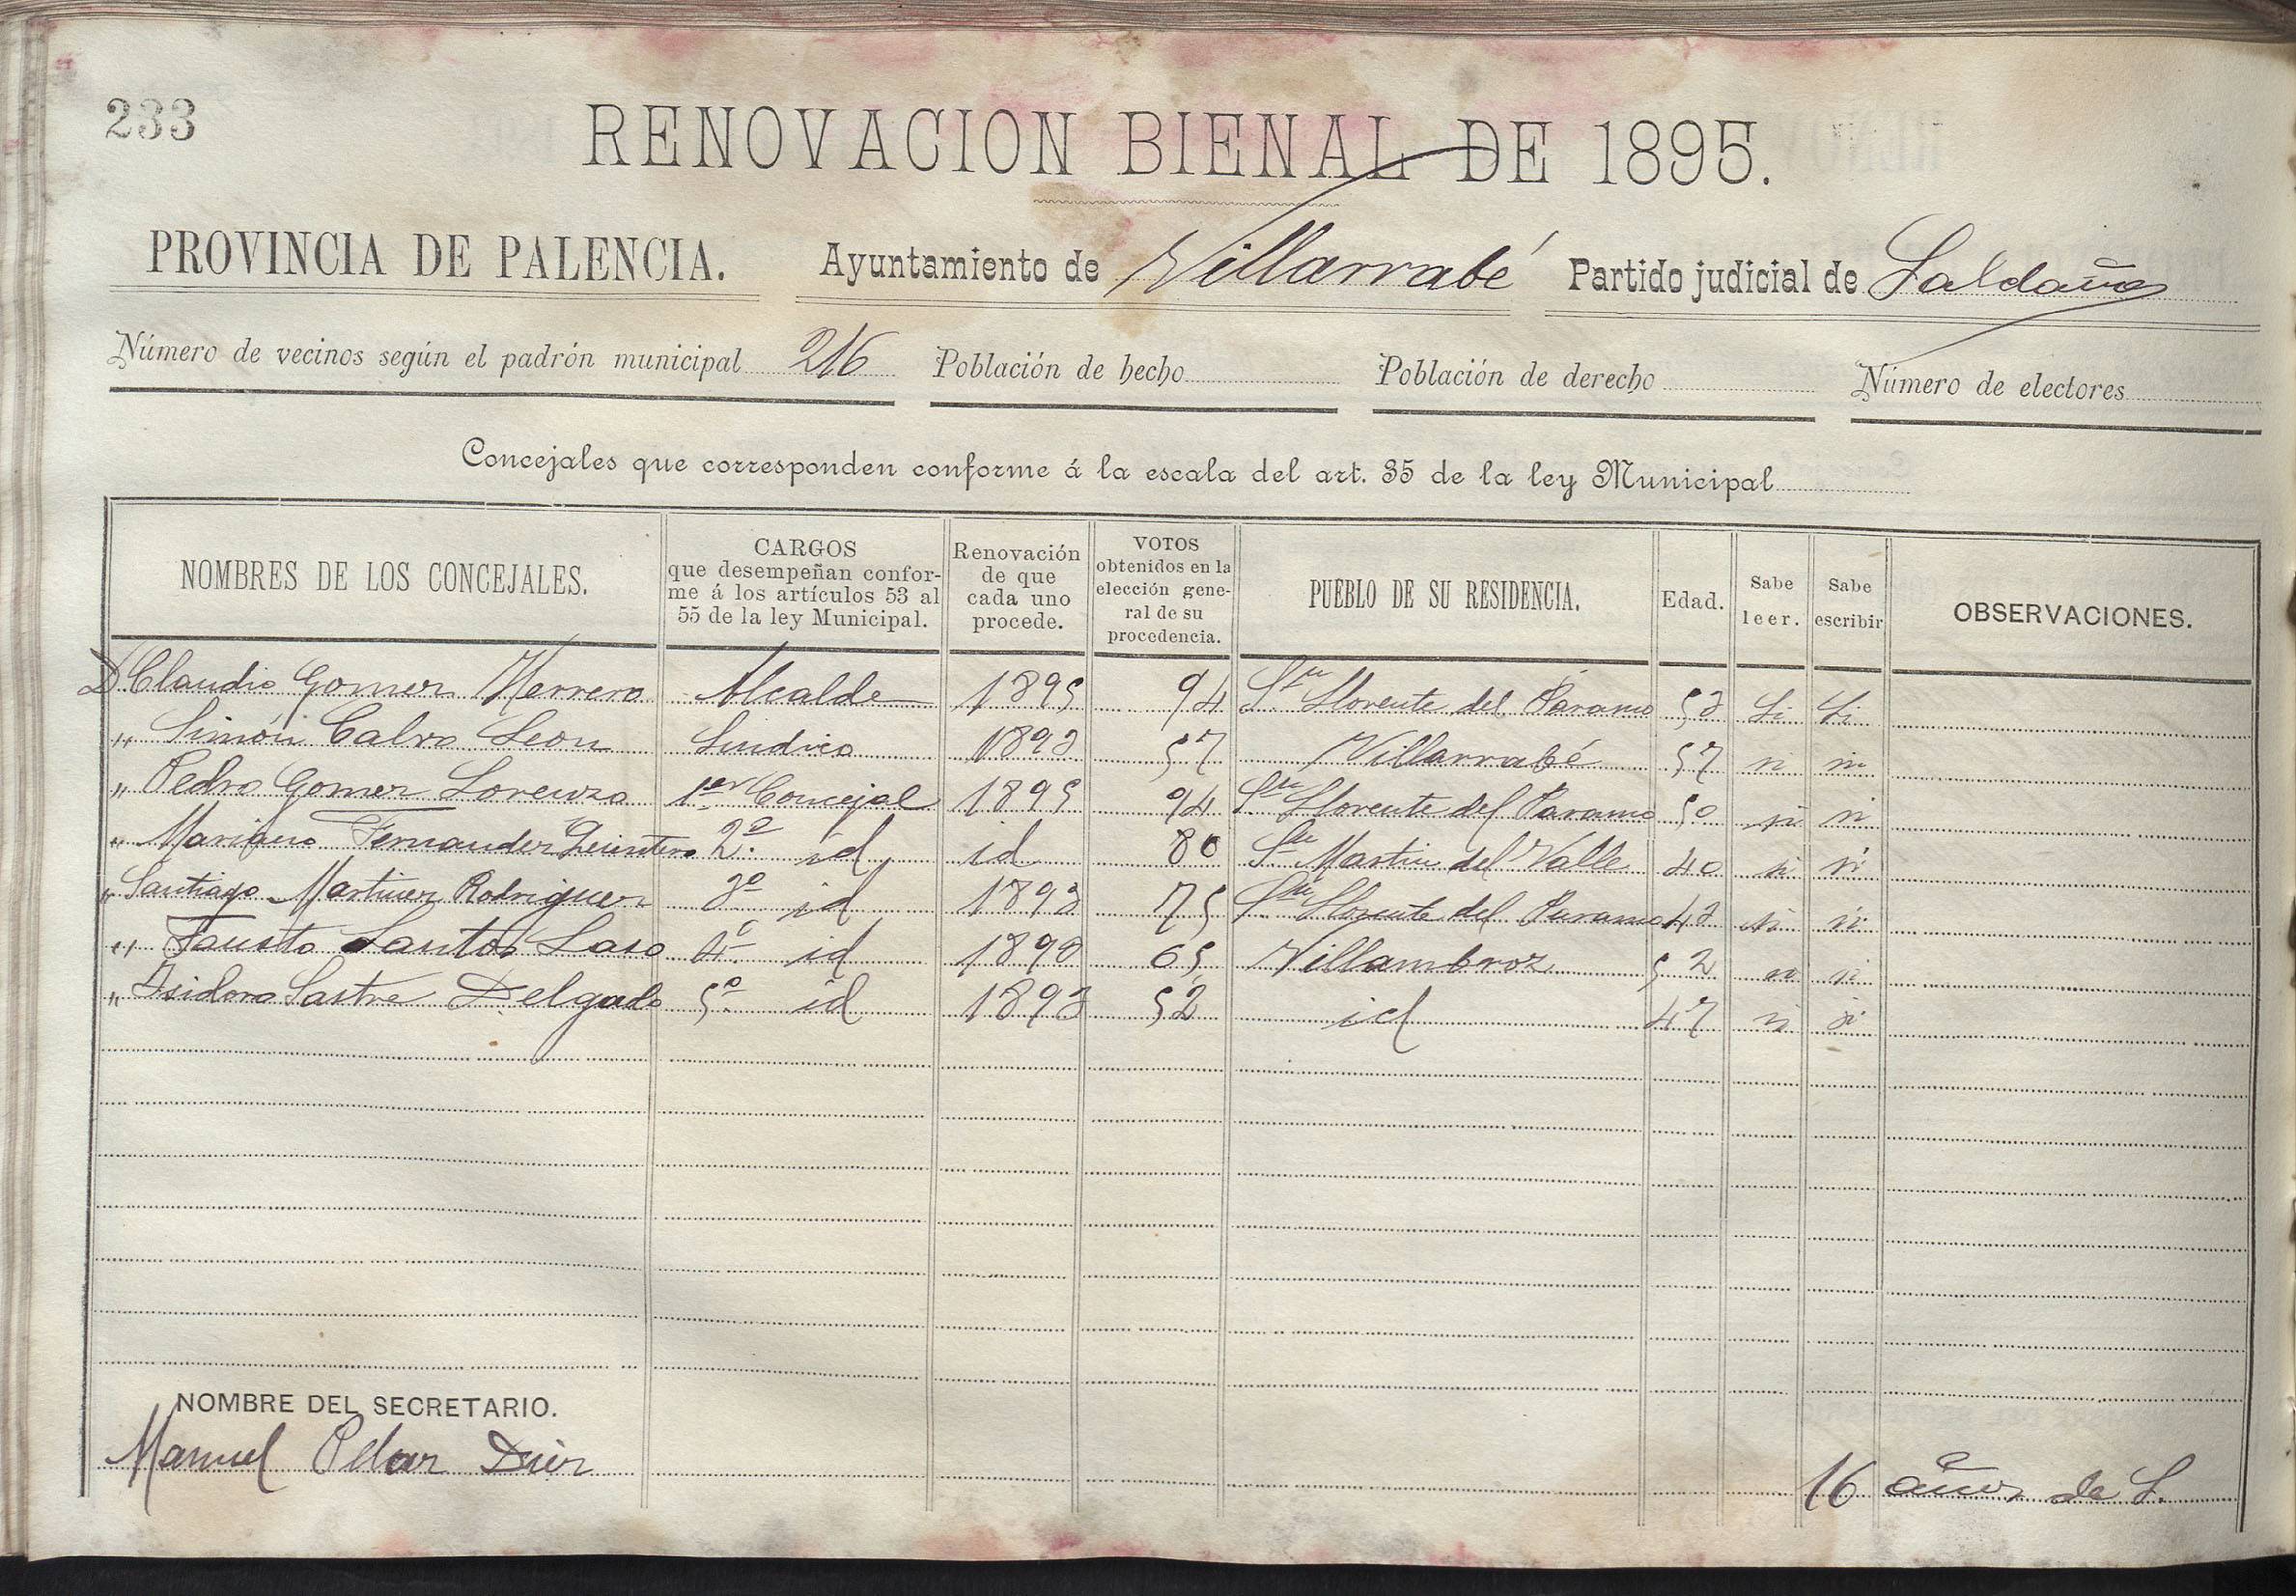 233
RENOVACION BIENAL DE 1895.
PROVINCIA DE PALENCIA. Ayuntamiento de Villarrabé Partido judicial de Saldaña
Número de vecinos según el padrón municipal 216 Población de hecho Población de derecho Número de electores
Concejales que corresponden conforme á la escala del art. 35 de la ley Municipal
NOMBRES DE LOS CONCEJALES.
CARGOS
que desempeñan confor-
me á los artículos 53 al
55 de la ley Municipal.
Renovación
de que
cada uno
procede.
VOTOS
obtenidos en la
elección gene-
ral de su
procedencia.
PUEBLO DE SU RESIDENCIA.
Edad.
Sabe
leer.
Sabe
escribir
OBSERVACIONES.
D Claudio Gomez Herrero Alcalde 1895 94 Sn Llorente del Páramo 53 Si Si
" Simón Calvo Leon Sindico 1893 57 Villarrabé 57 si si
" Pedro Gomez Lorenzo 1er Concejal 1895 94 Sn Llorente del Paramo 50 si si
" Mariano Fernandez Quintero 2º id id 80 Sn Martin del Valle 40 si si
" Santiago Martinez Rodriguez 3º id 1893 75 Sn Llorente del Paramo 43 si si
" Fausto Santos Laso 4º id 1893 65 Villambroz 52 si si
" Isidoro Sastre Delgado 5º id 1893 52 id 47 si si
NOMBRE DEL SECRETARIO.
Manuel Diez
16 años de S.